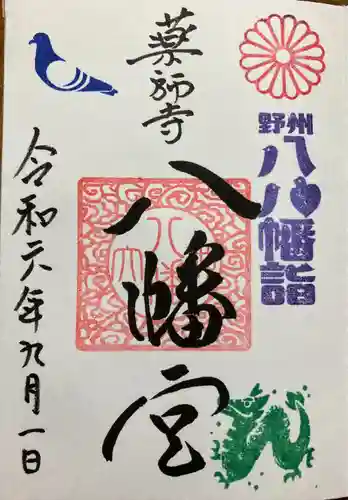 薬師寺
野州
八八幡詣
八幡宮
令和六年九月一日